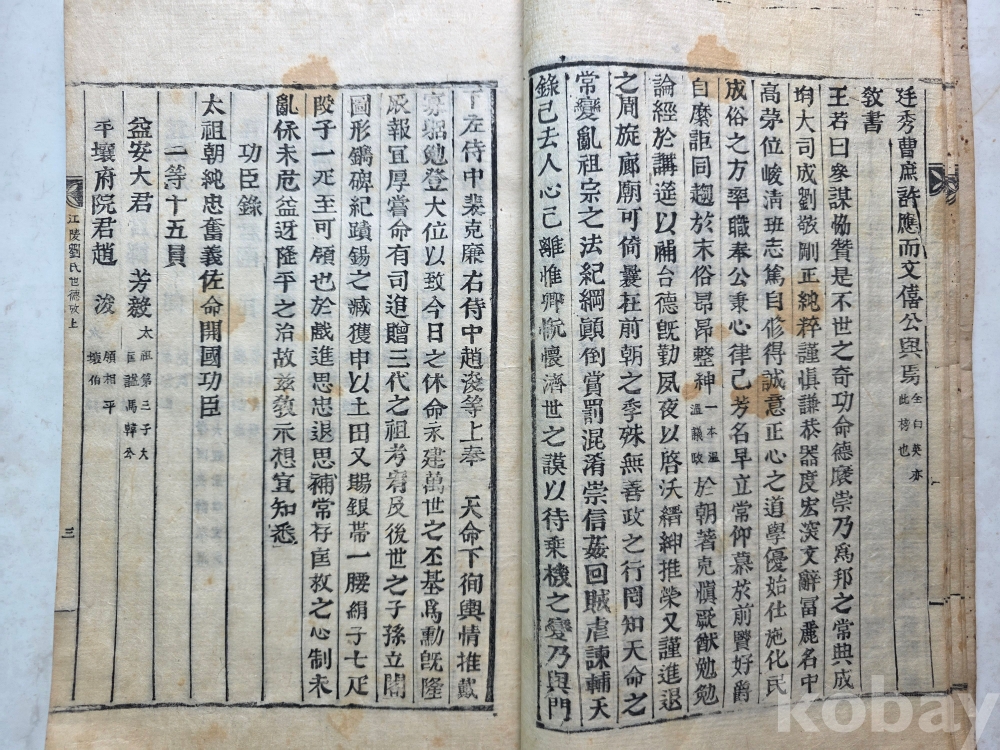 廷秀曹庶許應而文僖公與焉 仝白英亦此榜也
敎書
王若曰參謀恊贊是不世之奇功命德㢡崇乃爲邦之常典成
均大司成劉敬剛正純粹謹愼謙恭器度宏深文辭富麗名中
高茅位峻淸班志篤自修得誠意正心之道學優始仕施化民
成俗之方率職奉公秉心律己芳名早立常仰慕於前賢好爵
自縻詎同趨於末俗昂昂整神 一本溫溫議政 於朝著克愼厥猷勉勉
論經於講筵以補台德旣勤夙夜以啓沃縉紳推榮又謹進退
之周旋廊廟可倚曩在前朝之季殊無善政之行罔知天命之
常變亂祖宗之法紀綱顚倒賞罰混淆崇信姦回賊虐諫輔天
錄已去人心已離惟卿忼懷濟世之謨以待乗機之變乃與門
下左侍中裴克廉右侍中趙浚等上奉 天命下徇輿情推戴
寡躬勉登大位以致今日之休命永建萬世之丕基爲勳旣隆
厥報冝厚嘗命有司追贈三代之祖考宥及後世之子孫立閣
圖形鐫碑紀蹟錫之臧獲申以土田又賜銀帶一腰絹子七疋
段子一疋至可領也於戲進思思忠退思補常存匡救之心制未
亂保未危益迓隆平之治故玆敎示想宜知悉
功臣錄
太祖朝純忠奮義佐命開國功臣
一等十五員
益安大君 芳毅 太祖第三子大匡諡馬韓公
平壤府院君趙 浚 領相平壤伯
江陵劉氏世德攷上
三
kobay